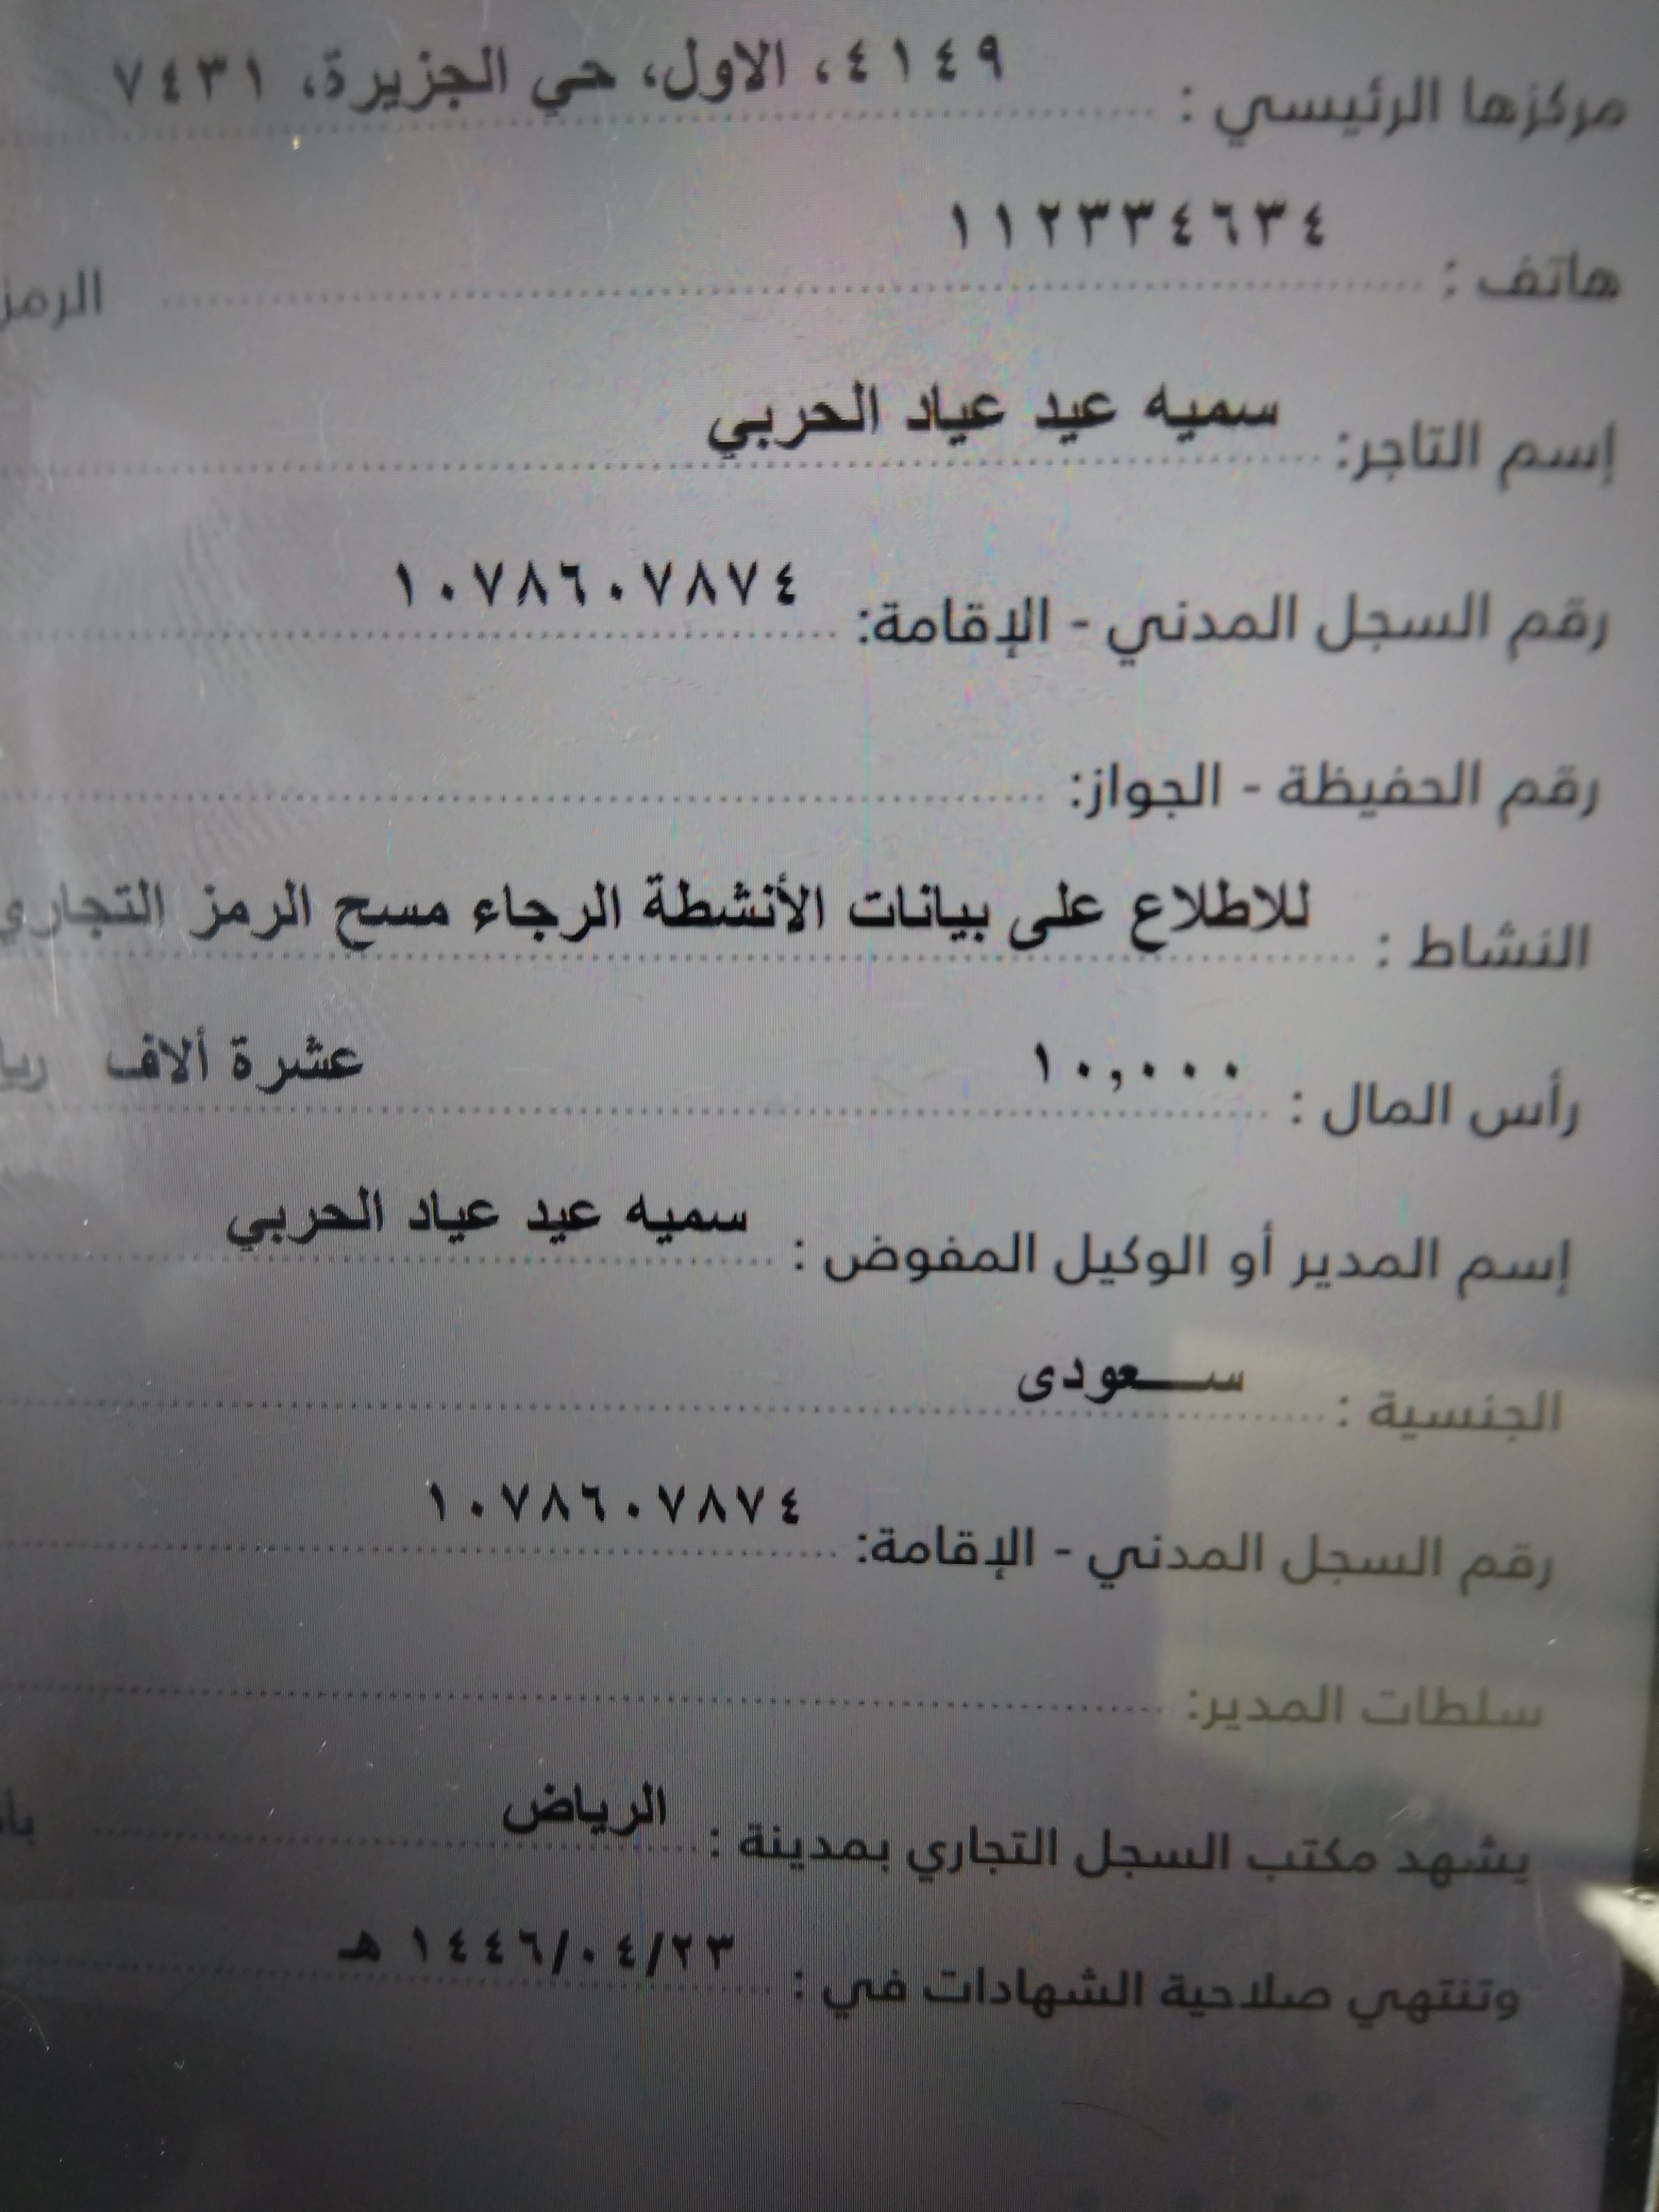 مركزها الرئيسي : ٤١٤٩، الاول، حي الجزيرة، ٧٤٣١
هاتف : ١١٢٣٣٤٦٣٤ الرمز
إسم التاجر: سميه عيد عياد الحربي
رقم السجل المدني - الإقامة: ١٠٧٨٦٠٧٨٧٤
رقم الحفيظة - الجواز:
النشاط : للاطلاع على بيانات الأنشطة الرجاء مسح الرمز التجاري
رأس المال : ١٠,٠٠٠ عشرة ألاف
إسم المدير أو الوكيل المفوض : سميه عيد عياد الحربي
الجنسية : سعودى
رقم السجل المدني - الإقامة: ١٠٧٨٦٠٧٨٧٤
سلطات المدير:
يشهد مكتب السجل التجاري بمدينة : الرياض
وتنتهي صلاحية الشهادات في : ١٤٤٦/٠٤/٢٣ هـ